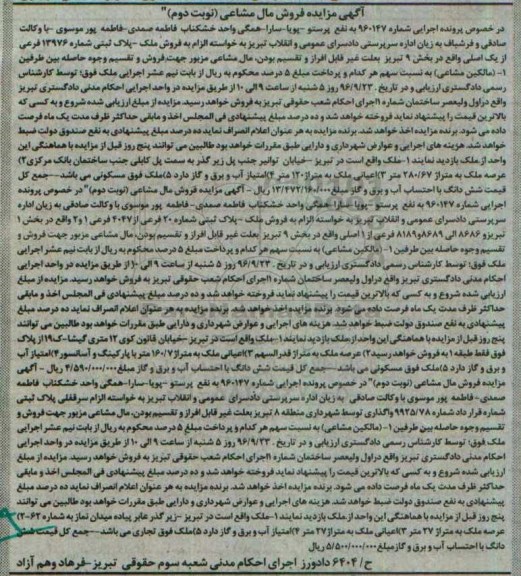 آگهی مزایده فروش مال مشاعی (نوبت دوم)"
در خصوص پرونده اجرایی شماره ۹۶۰۱۴۷ به نفع پرستو -پویا-سارا-همگی واحد خشکناب فاطمه صمدی-فاطمه پور موسوی -با وکالت
صادقی و فرشباف به زیان اداره سرپرستی دادسرای عمومی و انقلاب تبریز به خواسته الزام به فروش ملک -پلاک ثبتی شماره ۱۳۹۷۶ فرعی
از یک اصلی واقع در بخش ۹ تبریز بعلت غیر قابل افراز و تقسیم بودن، مال مشاعی مزبور جهت فروش و تقسیم وجوه حاصله بین طرفین
۱- (مالکین مشاعی) به نسبت سهم هر کدام و پرداخت مبلغ ۵ درصد محکوم به ریال از بابت نیم عشر اجرایی ملک فوق؛ توسط کارشناس
رسمی دادگستری ارزیابی و در تاریخ ۹۶/۹/۲۳ روز ۵ شنبه از ساعت ۹ الی ۱۰ از طریق مزایده در واحد اجرایی احکام مدنی دادگستری تبریز
واقع دراول ولیعصر ساختمان شماره ۱اجرای احکام شعب حقوقی تبریز به فروش خواهد رسید. مزایده از مبلغ ارزیابی شده شروع و به کسی که
بالاترین قیمت را پیشنهاد نماید فروخته خواهد شد و ده درصد مبلغ پیشنهادی فی المجلس اخذ و مابقی حداکثر ظرف مدت یک ماه فرصت
داده می شود. برنده مزایده اخذ خواهد شد. برنده مزایده به هر عنوان اعلام انصراف نماید ده درصد مبلغ پیشنهادی به نفع صندوق دولت ضبط
خواهد شد. هزینه های اجرایی و عوارض شهرداری و دارایی طبق مقررات خواهد بود طالبین می توانند پنج روز قبل از مزایده با هماهنگی این
واحد از ملک بازدید نمایند ۱-ملک واقع است در تبریز -خیابان توانیر جنب پل زیر گذر به سمت پل کابلی جنب ساختمان بانک مرکزی ۲)
عرصه ملک به متراژ ۲۸۰/۶۷ متر ۳)اعیانی ملک به متراژ۱۲۰ متر ۴)امتیاز آب و برق و گاز دارد ۵)ملک فوق مسکونی می باشد---جمع کل
قیمت شش دانگ با احتساب آب و برق و گاز مبلغ ۱۳/۴۷۲/۱۶۰/۰۰۰ ریال - آگهی مزایده فروش مال مشاعی (نوبت دوم)" در خصوص پرونده
اجرایی شماره ۹۶۰۱۴۷ به نفع پرستو -پویا-سارا-همگی واحد خشکناب فاطمه صمدی- فاطمه پور موسوی با وکالت صادقی به زیان اداره
سرپرستی دادسرای عمومی و انقلاب تبریز به خواسته الزام به فروش ملک -پلاک ثبتی شماره ۲۰ فرعی از۴۰۴۷ فرعی ۱ و۲ واقع در بخش ۱
تبریزو ۸۶۸۶ الی ۸۶۸۹و۸۱۸۹ فرعی از ۱ اصلی واقع در بخش ۹ تبریز بعلت غیر قابل افراز و تقسیم بودن، مال مشاعی مزبور جهت فروش و
تقسیم وجوه حاصله بین طرفین ۱- (مالکین مشاعی) به نسبت سهم هر کدام و پرداخت مبلغ ۵ درصد محکوم به ریال از بابت نیم عشر اجرایی
ملک فوق؛ توسط کارشناس رسمی دادگستری ارزیابی و در تاریخ . ۹۶/۹/۲۳ روز ۵ شنبه از ساعت ۹ الی ۱۰ از طریق مزایده در واحد اجرایی
احکام مدنی دادگستری تبریز واقع دراول ولیعصر ساختمان شماره ۱اجرای احکام شعب حقوقی تبریز به فروش خواهد رسید. مزایده از مبلغ
ارزیابی شده شروع و به کسی که بالاترین قیمت را پیشنهاد نماید فروخته خواهد شد و ده درصد مبلغ پیشنهادی فی المجلس اخذ و مابقی
حداکثر ظرف مدت یک ماه فرصت داده می شود. برنده مزایده اخذ خواهد شد. برنده مزایده به هر عنوان اعلام انصراف نماید ده درصد مبلغ
پیشنهادی به نفع صندوق دولت ضبط خواهد شد. هزینه های اجرایی و عوارض شهرداری و دارایی طبق مقررات خواهد بود طالبین می توانند
پنج روز قبل از مزایده با هماهنگی این واحد از ملک بازدید نمایند ۱-ملک واقع است در تبریز -خیابان قانون کوی ۱۲ متری گیشا-ک۱۹از پلاک
فوق فقط طبقه ۱ به فروش خواهد رسید ۲) عرصه ملک به متراژ قدرالسهم ۳)اعیانی ملک به متراژ ۱۶۰/۷ متر با پارکینگ و آسانسور ۴)امتیاز آب
و برق و گاز دارد ۵)ملک فوق مسکونی می باشد----جمع کل قیمت شش دانگ با احتساب آب و برق و گاز مبلغ ۴/۵۹۰/۰۰۰/۰۰۰ ریال -آگهی
مزایده فروش مال مشاعی (نوبت دوم)" در خصوص پرونده اجرایی شماره ۹۶۰۱۴۷ به نفع پرستو -پویا-سارا-همگی واحد خشکناب فاطمه
صمدی- فاطمه پور موسوی با وکالت صادقی به زیان اداره سرپرستی دادسرای عمومی و انقلاب تبریز به خواسته الزام سرقفلی پلاک ثبتی
شماره قرار داد شماره ۹۹۲۵/۷۸ واگذاری توسط شهرداری منطقه ۸ تبریز بعلت غیر قابل افراز و تقسیم بودن، مال مشاعی مزبور جهت فروش و
تقسیم وجوه حاصله بین طرفین ۱- (مالکین مشاعی) به نسبت سهم هر کدام و پرداخت مبلغ ۵ درصد محکوم به ریال از بابت نیم عشر اجرایی
ملک فوق؛ توسط کارشناس رسمی دادگستری ارزیابی و در تاریخ . ۹۶/۹/۲۳ روز ۵ شنبه از ساعت ۹ الی ۱۰ از طریق مزایده در واحد اجرایی
احکام مدنی دادگستری تبریز واقع دراول ولیعصر ساختمان شماره ۱اجرای احکام شعب حقوقی تبریز به فروش خواهد رسید. مزایده از مبلغ
ارزیابی شده شروع و به کسی که بالاترین قیمت را پیشنهاد نماید فروخته خواهد شد و ده درصد مبلغ پیشنهادی فی المجلس اخذ و مابقی
حداکثر ظرف مدت یک ماه فرصت داده می شود. برنده مزایده اخذ خواهد شد. برنده مزایده به هر عنوان اعلام انصراف نماید ده درصد مبلغ
پیشنهادی به نفع صندوق دولت ضبط خواهد شد. هزینه های اجرایی و عوارض شهرداری و دارایی طبق مقررات خواهد بود طالبین می توانند
پنج روز قبل از مزایده با هماهنگی این واحد از ملک بازدید نمایند ۱-ملک واقع است در تبریز -زیر گذر عابر پیاده میدان نماز به شماره ۶۲-۲)
عرصه ملک به متراژ ۲۷ متر ۳)اعیانی ملک به متراژ ۲۷ متر ۴)امتیاز آب و برق و گاز دارد ۵)ملک فوق تجاری می باشد---جمع کل قیمت شش
دانگ با احتساب آب و برق و گازمبلغ ۵/۵۰۰/۰۰۰/۰۰۰ ریال
ح/ ۶۴۰۴ دادورز اجرای احکام مدنی شعبه سوم حقوقی تبریز-فرهاد وهم آزاد